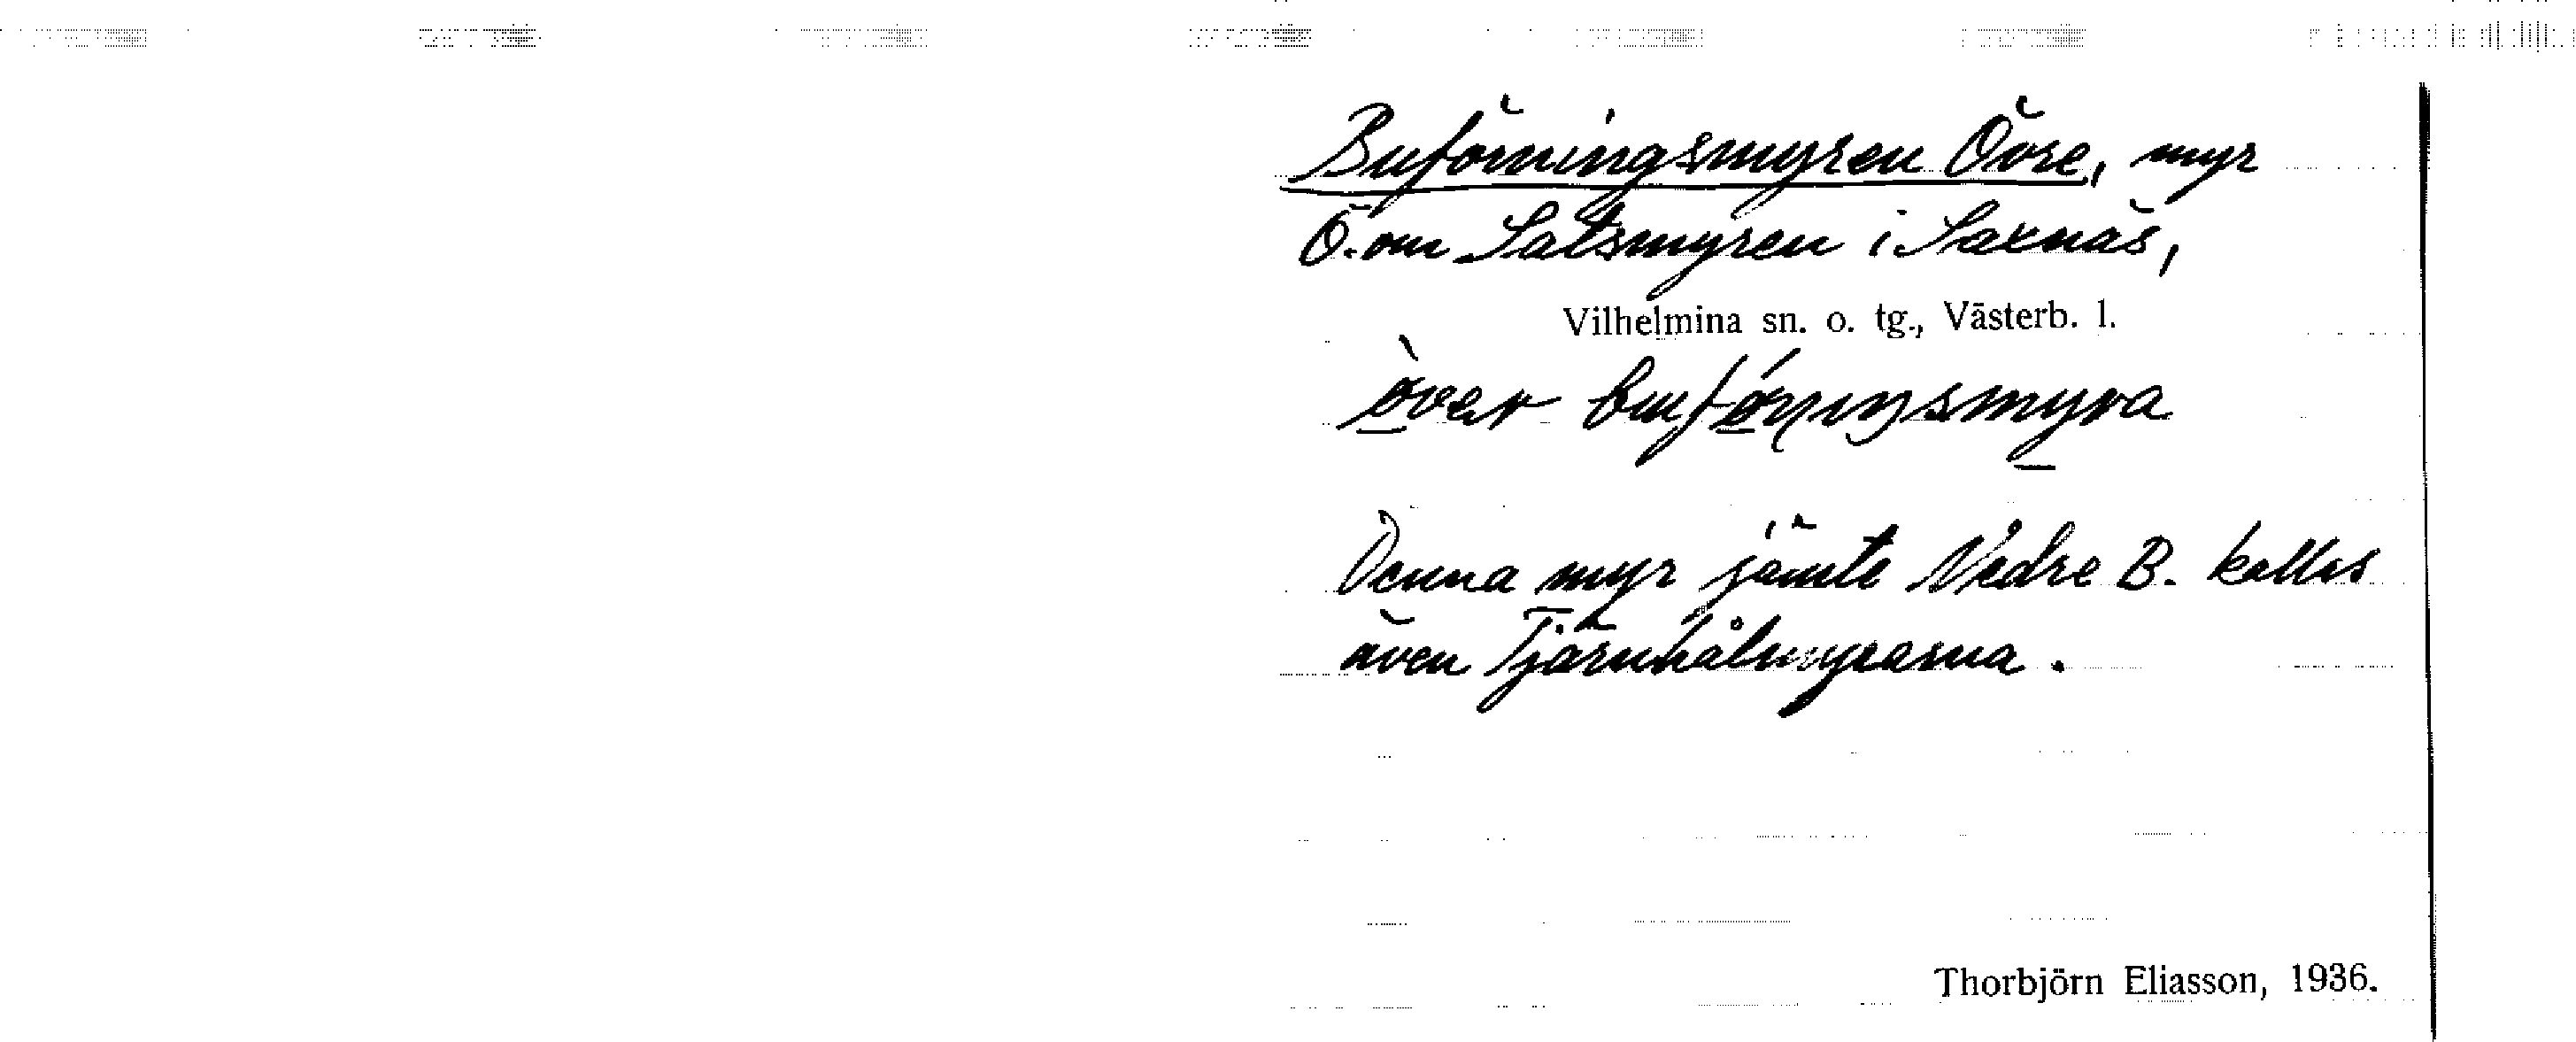 Buförningsmyren Övre, myr
Ö. om Satsmyren i Saxnäs,
Vilhelmina sn. o. tg., Västerb. l.
över buförningsmyra
Denna myr jämte Nedre B. kallas
även Tjärnhålmyrarna.
Thorbjörn Eliasson, 1936.